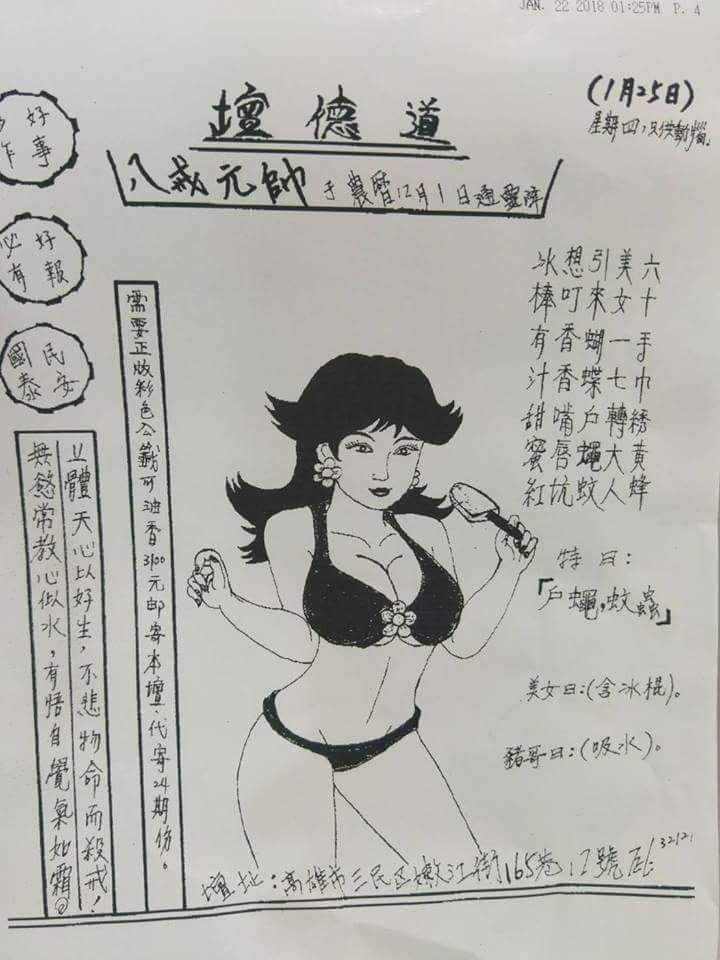 JAN. 22 2018 01:25PM P. 4
(1月25日)
星期四,只供動腦。
壇德道
八戒元帥于農曆12月1日
好事
好報
必有
民安
國泰
六十手巾綉黃蜂
美女一七轉大人
引來蝴蝶戶蠅蚊
想叮香香嘴唇坑
冰棒有汁甜蜜紅
特日:
「戶蠅,蚊蟲」
美女日:(含冰棍)。
豬哥日:(吸水)。
需要正版彩色公籤可油香3100元郵寄本壇,代寄24期份。
立體天心以好生,不悲物命而殺戒!
無慾常教心似水,有悟自覺氣如霜。
壇址:高雄市三民区嫩江街165巷12號